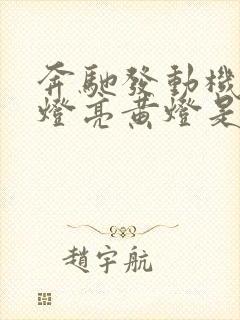 奔馳發動機
燈亮黃燈是
趙宇航